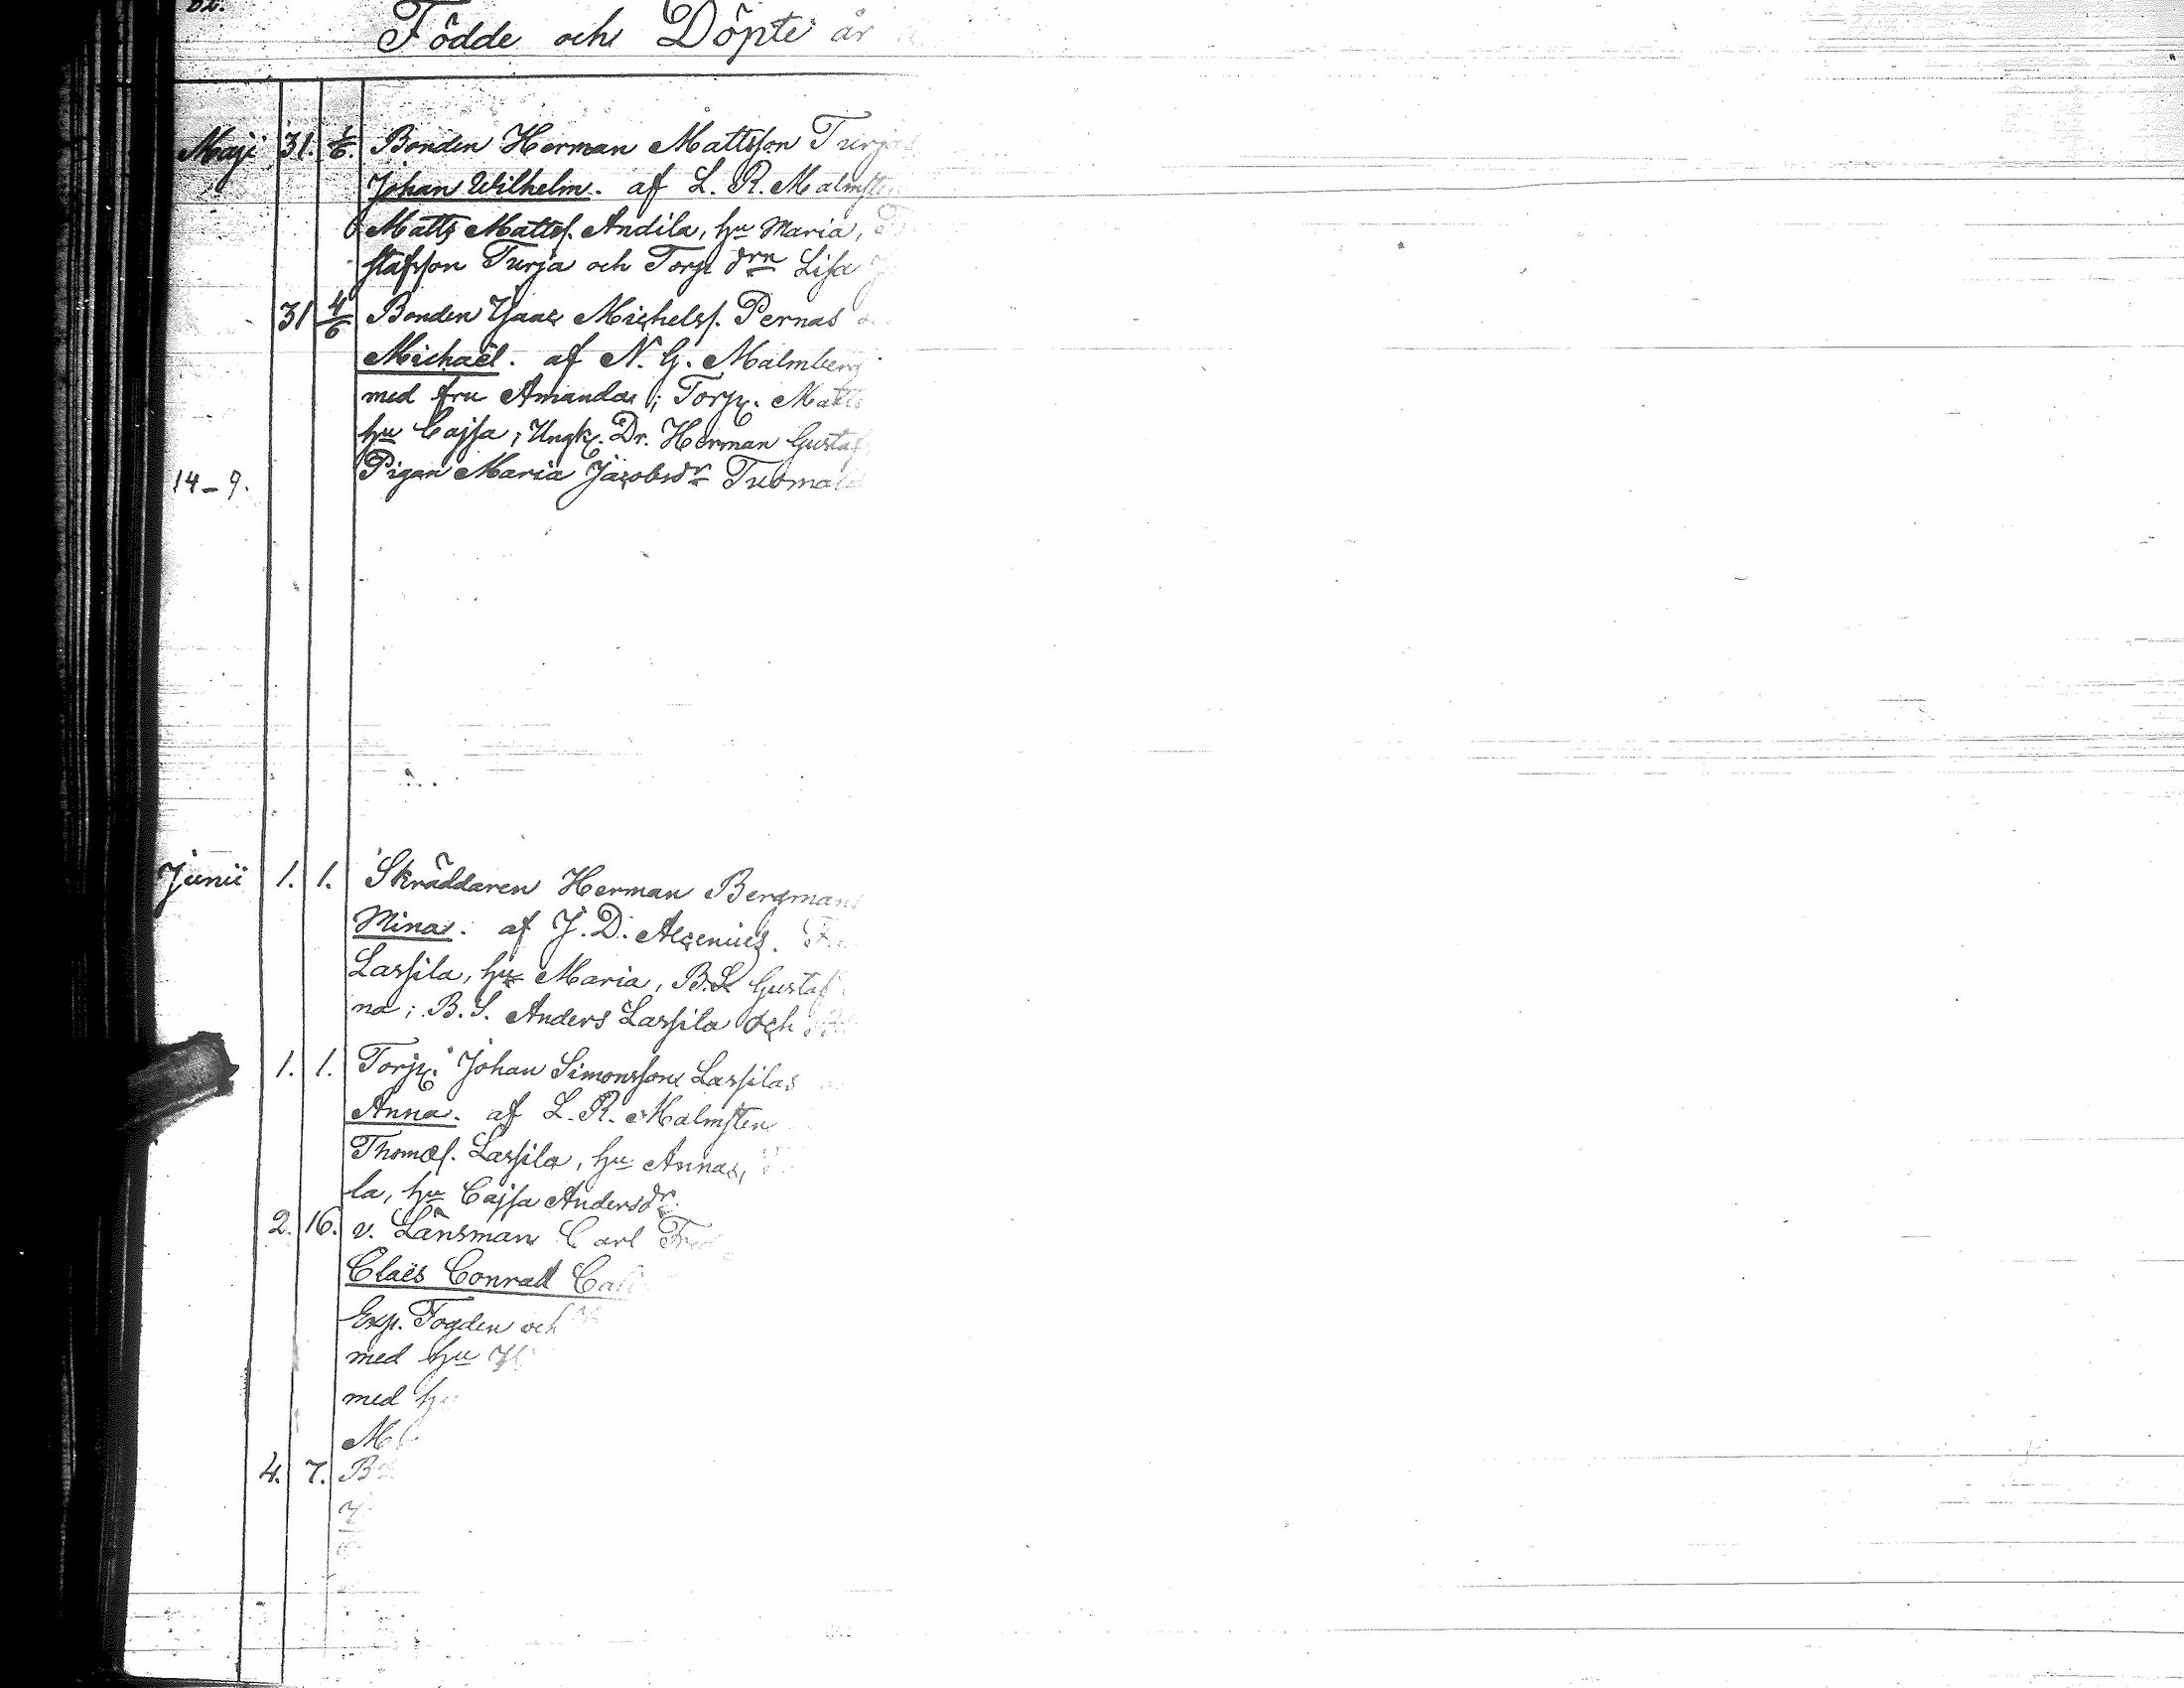 Födde och Döpte år
Maji 31. 1/6. Bonden Herman Mattsson Turjas
Johan Wilhelm. af L. R. Malmsten
Matts Mattss. Andila, hu Maria,
stafsson Turja och Torp. drn Lisa
31 4/6 Bonden Isaac Michelss. Pernas
Michaël. af N. G. Malmberg
med fru Amanda; Torp. Matts
hu Cajsa; Ungk. Dr. Herman Gustaf
Pigan Maria Jacobsdr Tuomald
14-9.
Junii 1. 1. Skräddaren Herman Bergmans
Mina. af J. D. Alcenius.
Lassila, hu Maria, B.S. Gustaf
na; B. S. Anders Lassila och
1. 1. Torp. Johan Simonsson Lassilas
Anna. af L. R. Malmsten
Thomæs. Lassila, hu Anna,
la, hu Cajsa Andersdr.
2. 16. v. Länsman Carl
Claës Conrad
Exp. Fogden och
med hu
med hu
4. 7.